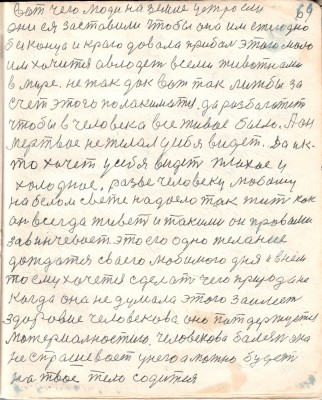 69
Вот чего люди на земле устроили
дни ся заставили чтобы она им ежегодно
без конца и краю довала прибыл этого мало
им хочется овлодет всеми животнами
в мире. не так док вот так лижбы за
счет этого полакимится, да разбагатет
чтобы в человека все живое было. А он
мертвое нежелал у себя видет. Да и к-
то хочет у себя видет плихое и
холодное, разве человеку любому
на белом свете надоело так жит как
он всегда живет и такими он провами
завинчевает это его одно желание
дождатся своего любимого дня в нем
то ему хочется сделат чего природа не
когда она не думала этого заимет
здоровие человекова оно потдержуется
мотериалностию. человекова болезн она
не спрашевает у него а можно будет
на твое тело содится